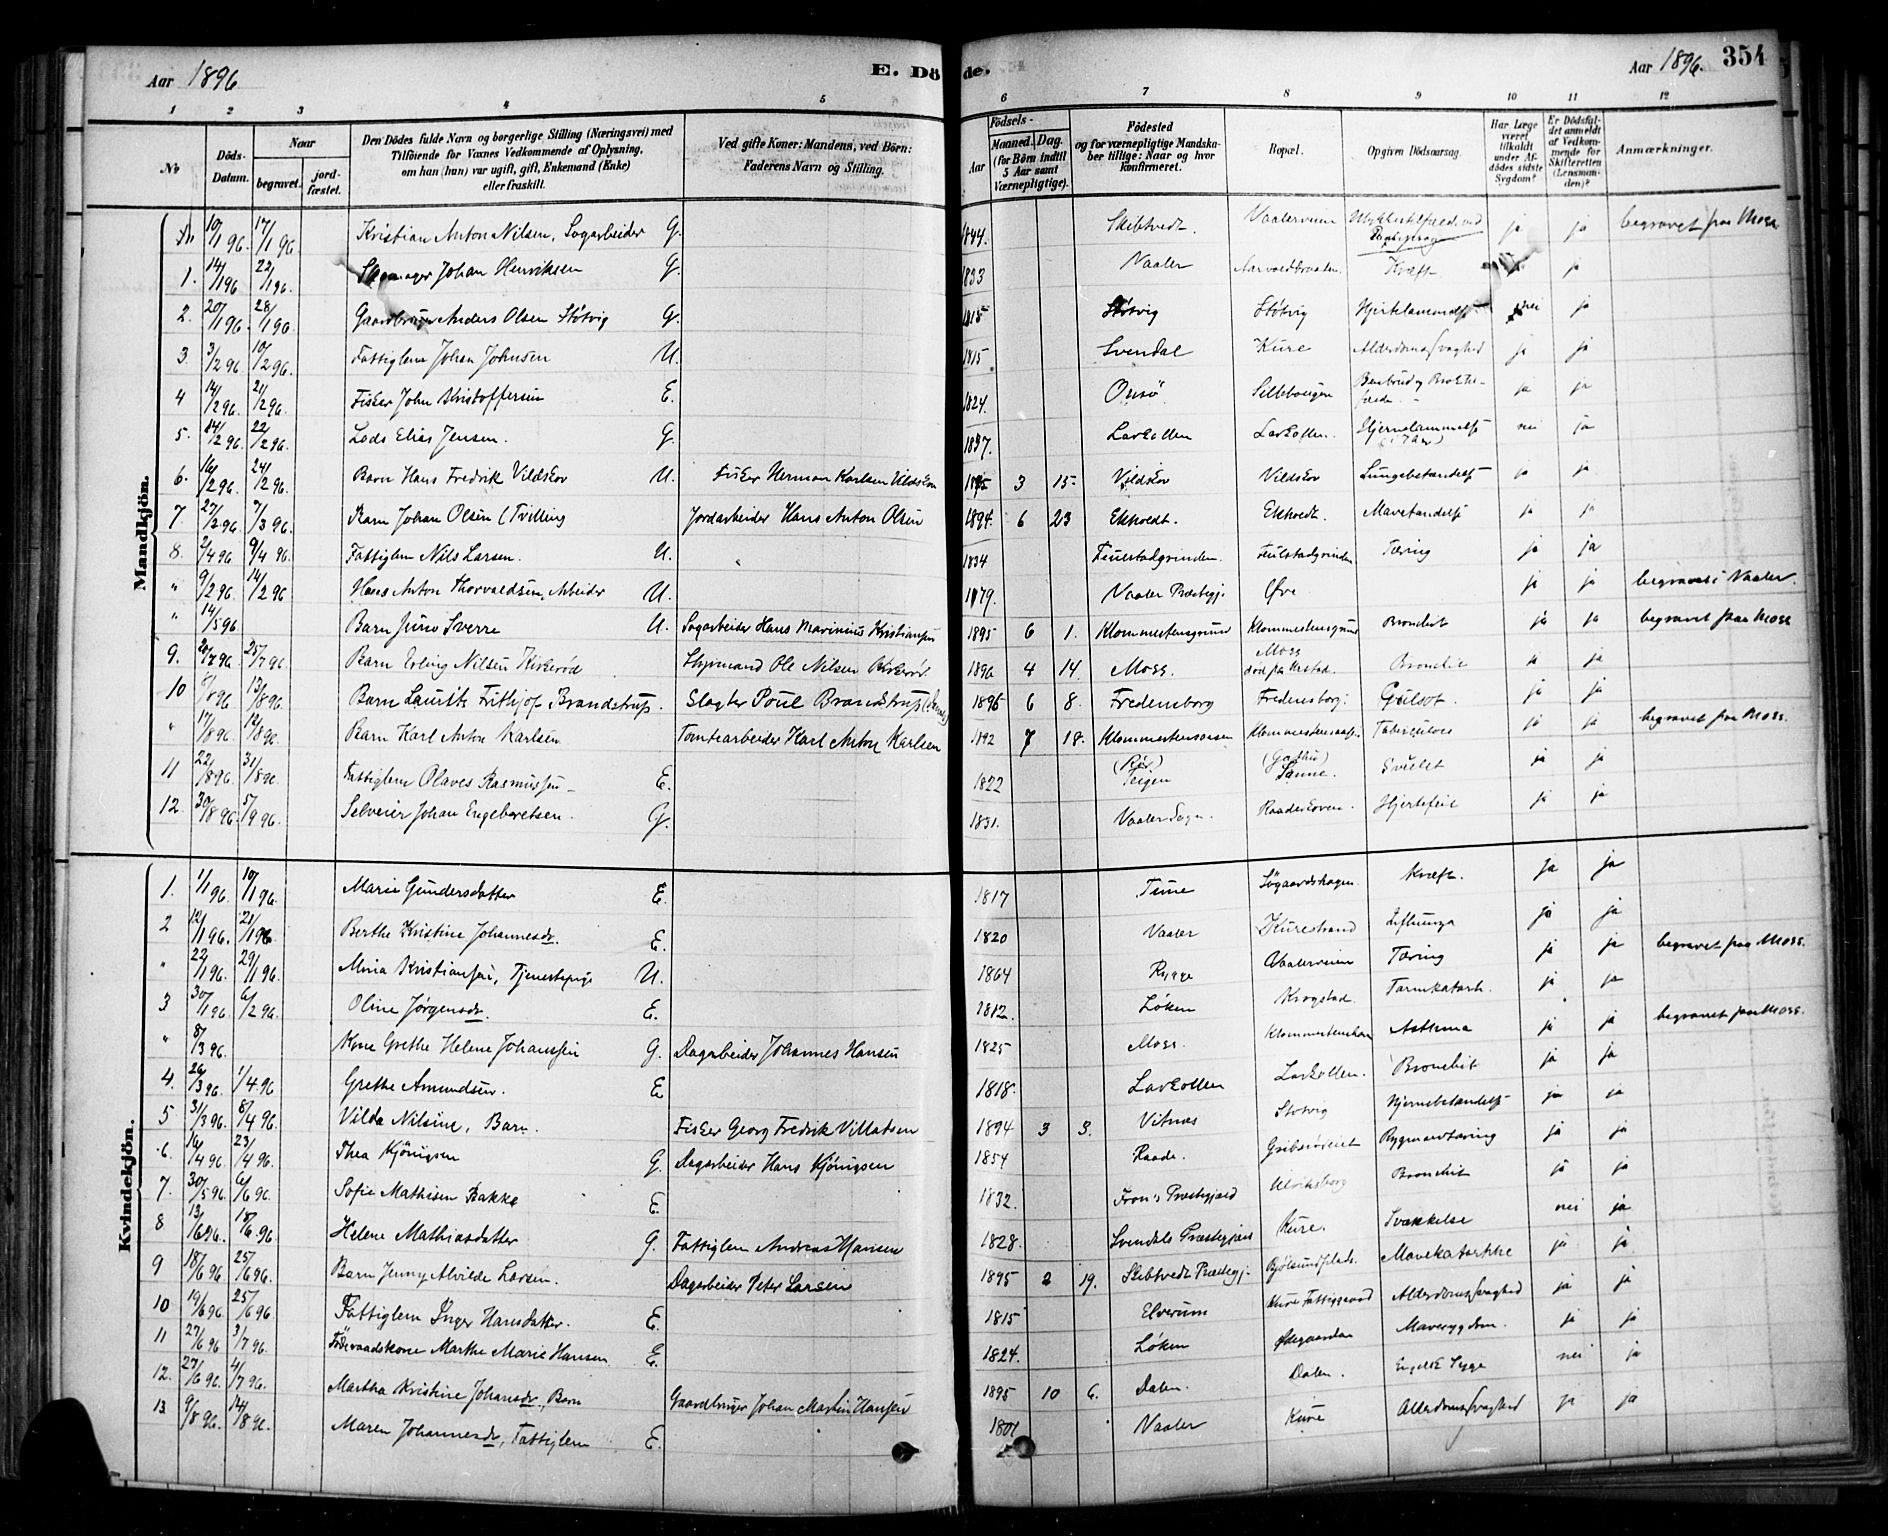 Aar 1896
E. Döde.
Aar 1896. 354
1 2 3 4 5 6 7 8 9 10 11 12
No
Döds-Datum.
Naar
begravet.
jord-fæstet.
Den Dödes fulde Navn og borgerlige Stilling (Næringsvei) med Tilföiende for Voxnes Vedkommende af Oplysning, om han (hun) var ugift, gift, Enkemand (Enke) eller fraskilt.
Ved gifte Koner: Mandens, ved Börn: Faderens Navn og Stilling.
Födsels-
Aar
Maaned. Dag.
(for Börn indtil 5 Aar samt Værnepligtige).
Födested og for værnepligtige Mandskaber tillige: Naar og hvor konfirmeret.
Bopæl.
Opgiven Dödsaarsag.
Har Læge været tilkaldt under Afdödes sidste Sygdom?
Er Dödsfaldet anmeldt af Vedkommende for Skifteretten (Lensmanden)?
Anmærkninger.
Mandkjön.
10/1 96. 17/1 96. Kristian Anton Nilsen, Sagarbeider G. 1844. Skibtvedt. Vaalerveien ja ja begravet paa Moss
1. 14/1 96 22/1 96. Johan Henriksen G. 1833 Vaaler Kræft ja
2. 20/1 96. 28/1 96. Gaardbruger Anders Olsen Støtvig G. 1815 Støtvig Støtvig nei ja
3. 3/2 96 10/2 96. Fattiglem Johan Johnsen U. 1815 Svendal Kure Alderdomssvaghed ja ja
4 14/2 96. 21/2 96. Fisker John Kristoffersen E. 1824. Onsø ja ja
5. 14/2 96. 22/2 96. Lods Elias Jensen. G. 1837. Larkollen Larkollen. nei ja
6. 16/2 96. 24/2 96. Barn Hans Fredrik Vildskov U. Fisker Herman Karlsen Vildskov 1895 3 15 Vildskov Vildskov Lungebetændelse ja ja
7. 27/2 96. 7/3 96. Barn Johan Olsen (Tvilling Jordarbeider Hans Anton Olsen 1894. 6 23 Ekhvedt. Ekhvedt. ja ja
8. 2/4 96 9/4 96. Fattiglem Nils Larsen. U. 1834 Feulstadgrinden Feulstadgrinden Tæring ja ja
" 9/2 96. 14/2 96 Hans Anton Thorvaldsen, Arbeider U. 1879. Vaaler Præstegj. Øre ja ja begravet i Vaaler.
" 14/5 96 Barn Juno Sverre U. Sagarbeider Hans Marinius Kristiansen 1895 6 1. Klommestensgrund Klommestensgrund Bronchit ja ja begravet paa Moss
9. 20/7 96. 25/7 96. Barn Erling Nilsen Kirkerød Styrmand Ole Nilsen Kirkerød 1896 4 14. Moss. Moss Bronchit ja ja
10 8/8 96 13/8 96. Barn Laurits Frithjof Brandstrup. Slagter Poul Brandstrup 1895 6 8. Fredensborg Fredensborg. Gulsot. ja ja
" 17/8 96. Barn Karl Anton Karlsen Tomtearbeider Karl Anton Karlsen 1892 7 18. ja ja begravet paa Moss.
11 22/8 96. 31/8 96. Fattiglem Olaves Rasmussen E. 1822 Teigen Sanne. ja ja
12. 30/8 96. 5/9 96. Selveier Johan Engebretsen. G. 1831. Vaaler Sogn. Raaderskoven. Hjertefeil ja ja
Kvindekjön.
1. 1/1 96. 10/1 96. Marie Gundersdatter E. 1817 Tune Kræft. Ja ja
2 12/1 96. 21/1 96 Berthe Kristine Johannesdr. E. 1820 Vaaler Kurestrand ja ja
" 22/1 96. 29/1 96. Mina Kristiansen, Tjenestepige U. 1864 Rygge Vaalerveien Tæring ja ja begravet paa Moss.
3 30/1 96. 6/2 96. Oline Jørgensdr. E. 1812. Løken Krogstad. Tarmkatarh. ja ja
" 8/3 96. Kone Grethe Helene Johanssen G. Dagarbeider Johannes Hansen 1825 Moss. Asthma ja ja begravet paa Moss.
4. 26/3 96. 1/4 96. Grethe Amundsen. E 1818. Larkollen Larkollen. Bronchit ja ja
5 31/3 96. 8/4 96. Vilda Nilsine, Barn. Fisker Georg Fredrik Villatsen 1894 3 3. Vitnæs Støtvig Hjernebetændelse ja ja
6. 16/4 96. 23/4 96. Thea Kjönigsen G. Dagarbeider Hans Kjönigsen 1854 Raade. Rygmarvtæring ja ja
7. 30/5 96. 6/6 96. Sofie Mathisen Bakke E. 1832. Frons Præstegjæld Ulriksborg Bronchit ja ja
8 13/6 96. 18/6 96. Helene Mathiasdatter G. Fattiglem Andreas Hansen 1828. Svendals Præstegjæld Kure. Svækkelse nei ja
9 18/6 96 25/6 96. Barn Jenny Alvilde Larsen. Dagarbeider Peter Larsen 1895 2 19. Skibtvedt Præstegj. Mavekatarrhe ja ja
10 19/6 96 25/6 96 Fattiglem Inger Hansdatter. E. 1815 Elverum Kure Fattiggaard Alderdomssvaghed ja ja
11 27/6 96 3/7 96. Föderaadskone Marthe Marie Hansen E. 1824. Løken Ødegaarden Mavesygdom. ja ja
12. 27/6 96. 4/7 96. Martha Kristine Johansdr., Barn Gaardbruger Johan Martin Hansen 1895 10 6. Dalen. Dalen. Engelsk Syge nei ja
13 9/8 96. 14/8 96. Maren Johannesdr., Fattiglem E. 1801 Vaaler Kure Alderdomssvaghed ja ja